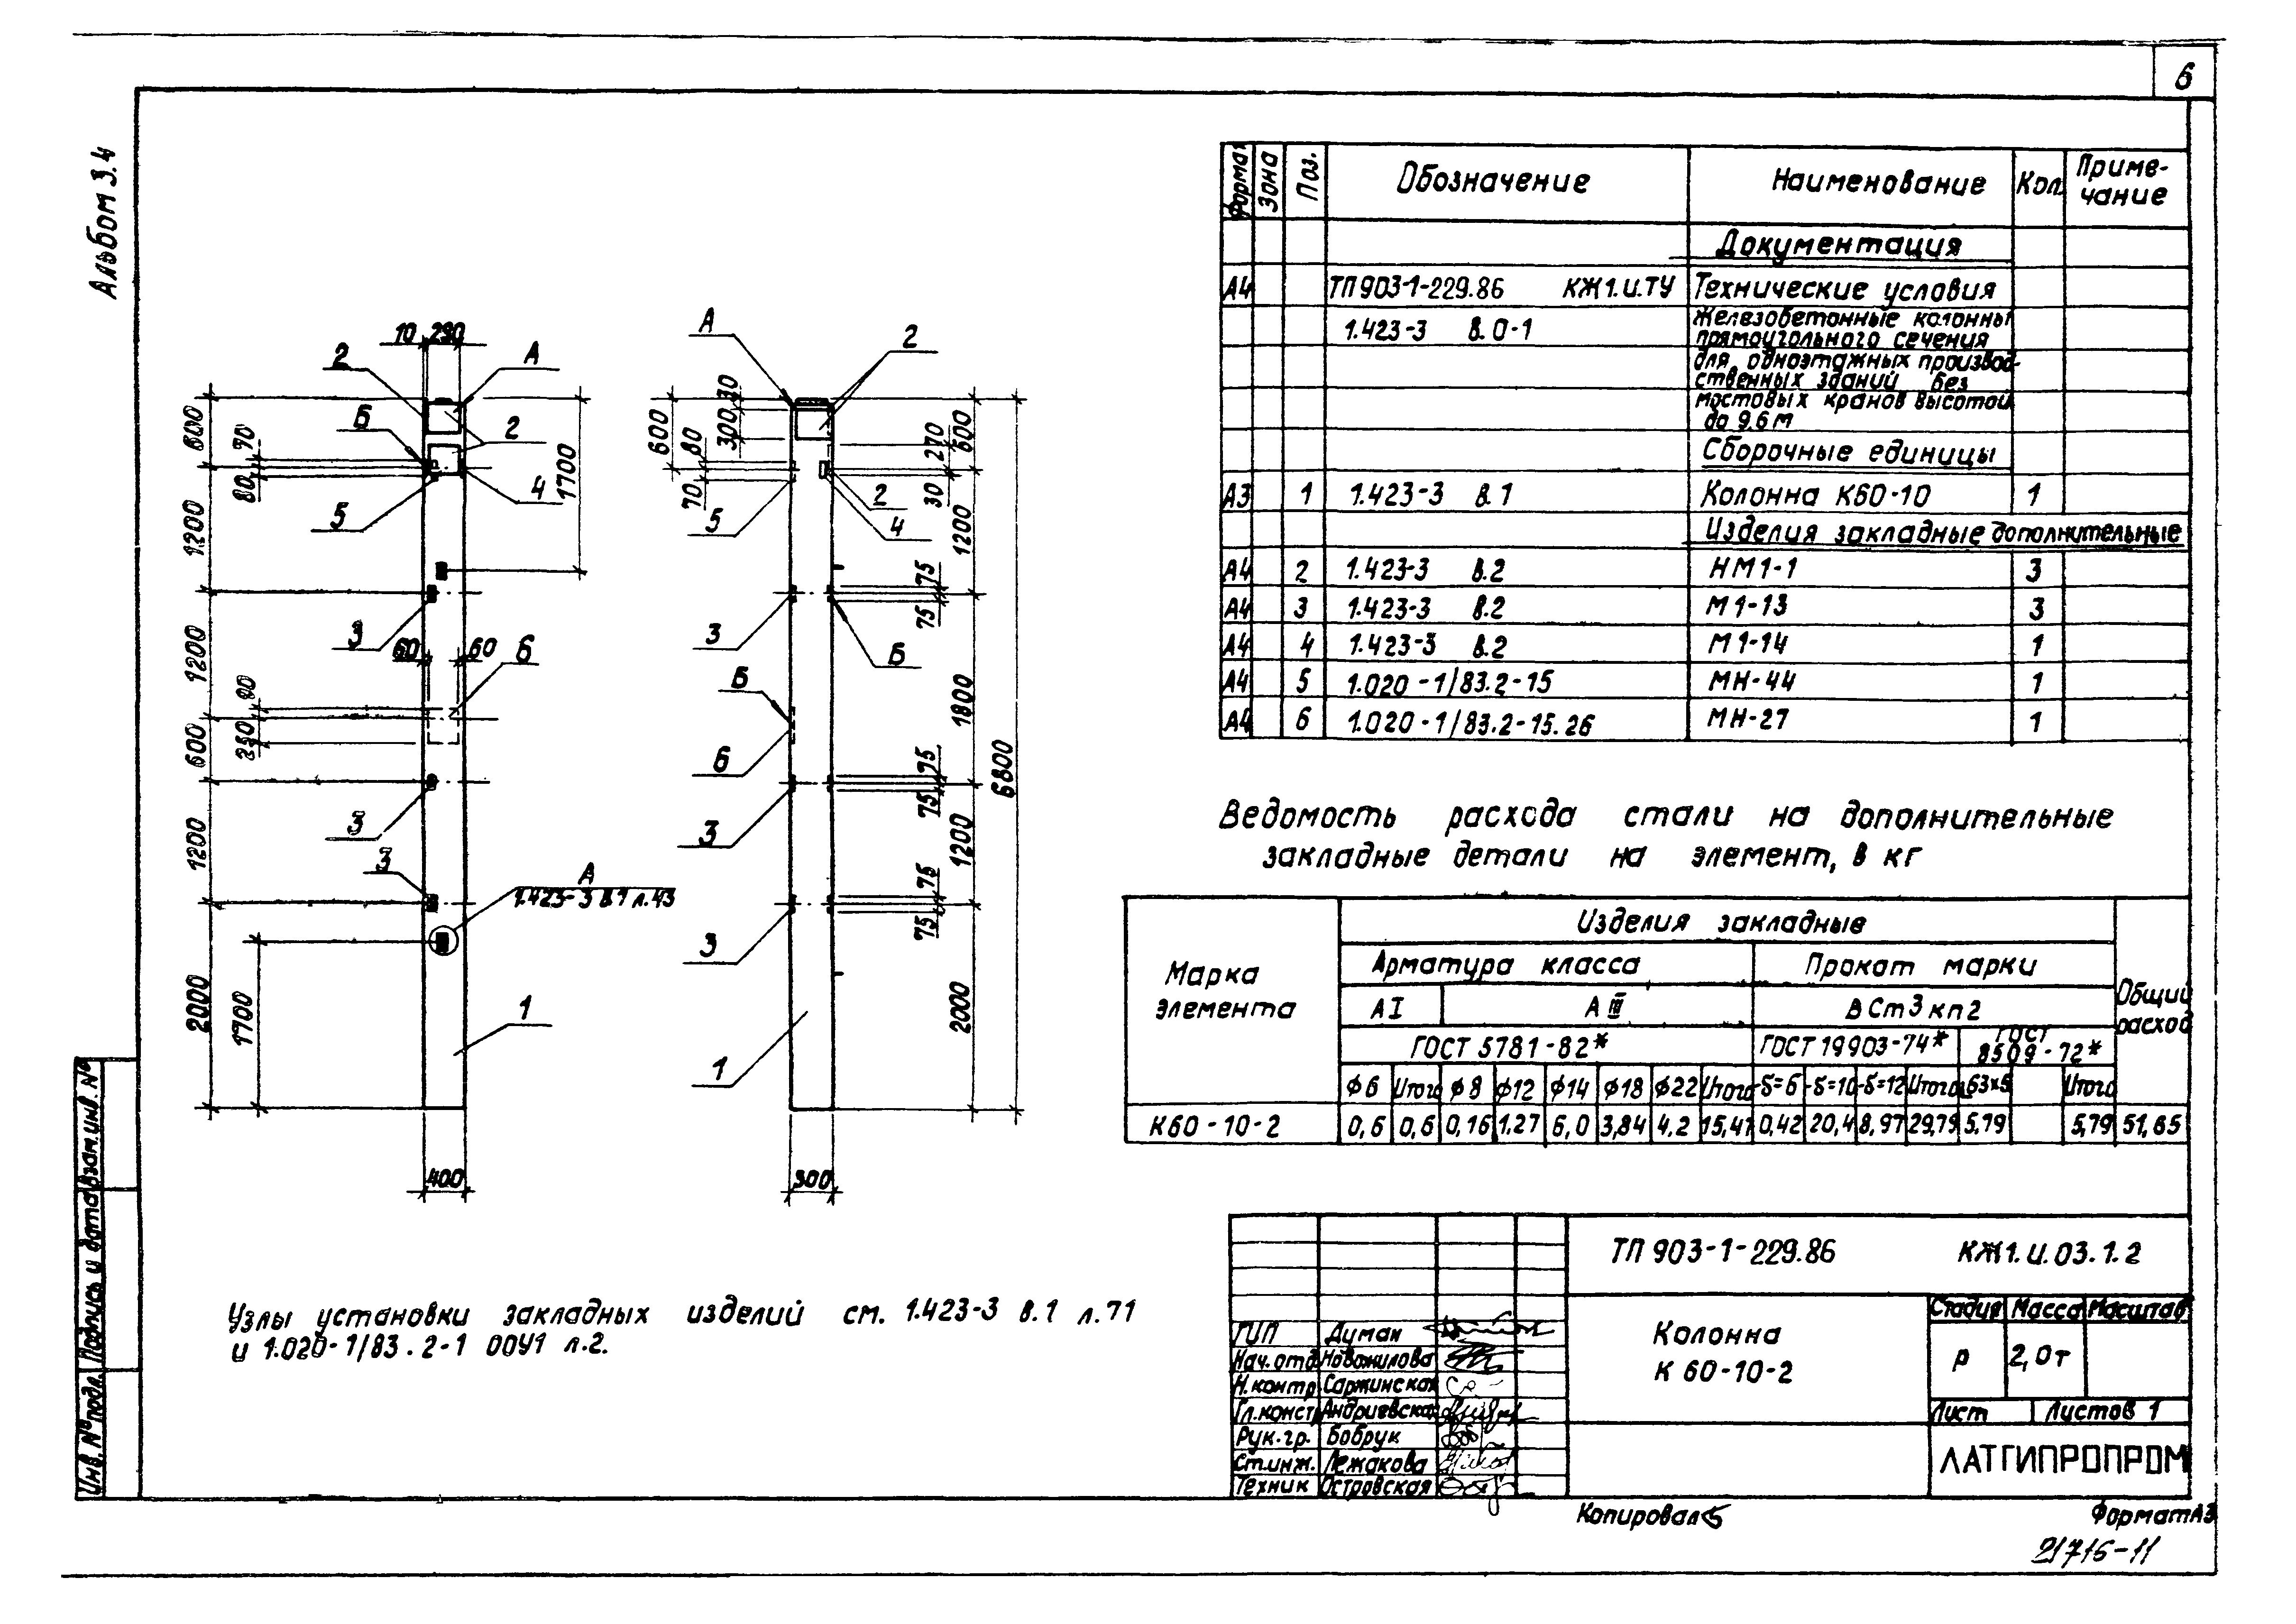 6
Альбом 3.4
Формат Зона Поз. Обозначение Наименование Кол. Приме-
чание
Документация
А4 ТП 903-1-229.86 КЖ1.И.ТУ Технические условия
1.423-3 в.0-1 Железобетонные колонны
прямоугольного сечения
для одноэтажных производ-
ственных зданий без
мостовых кранов высотой
до 9.6 м
Сборочные единицы
А3 1 1.423-3 в.1 Колонна К60-10 1
Изделия закладные дополнительные
А4 2 1.423-3 в.2 НМ1-1 3
А4 3 1.423-3 в.2 М1-13 3
А4 4 1.423-3 в.2 М1-14 1
А4 5 1.020-1/83.2-15 МН-44 1
А4 6 1.020-1/83.2-15.26 МН-27 1
10 290
2 А
Б 2
4
5
3
60 60 6
3
3
А
1.423-3 в.1 л.43
1
600 70
80
1200
1200
600
1200
2000
1700
1700
400
А 2
30
300
600 80
70
270 600
30
5 2
4
1200
75
75
3 Б
Б
6
1800
75
75
3
1200
6800
75
75
3
2000
1
300
Ведомость расхода стали на дополнительные
закладные детали на элемент, в кг
Марка
элемента
Изделия закладные
Общий
расход
Арматура класса Прокат марки
А I А III ВСт3кп2
ГОСТ 5781-82* ГОСТ 19903-74* ГОСТ
8509-72*
ф6 Итого ф8 ф12 ф14 ф18 ф22 Итого -δ=6 -δ=10 -δ=12 Итого 63х5 Итого
К60-10-2 0,6 0,6 0,16 1.27 6,0 3,84 4.2 15,47 0,42 20,4 8,97 29,79 5.79 5,79 51,65
Узлы установки закладных изделий см. 1.423-3 в.1 л.71
и 1.020-1/83.2-1 00У1 л.2.
ТП 903-1-229.86 КЖ1.И.03.1.2
Колонна
К 60-10-2
Стадия Масса Масштаб
р 2,0т
Лист Листов 1
ЛАТГИПРОПРОМ
ГИП Думан
Нач.отд. Новожилова
Н.контр. Саржинская
Гл.констр Андриевская
Рук.гр. Бобрук
Ст.инж. Лежакова
Техник Островская
Инв. № подл. Подпись и дата Взам.инв. №
Копировал
Формат А3
21716-11